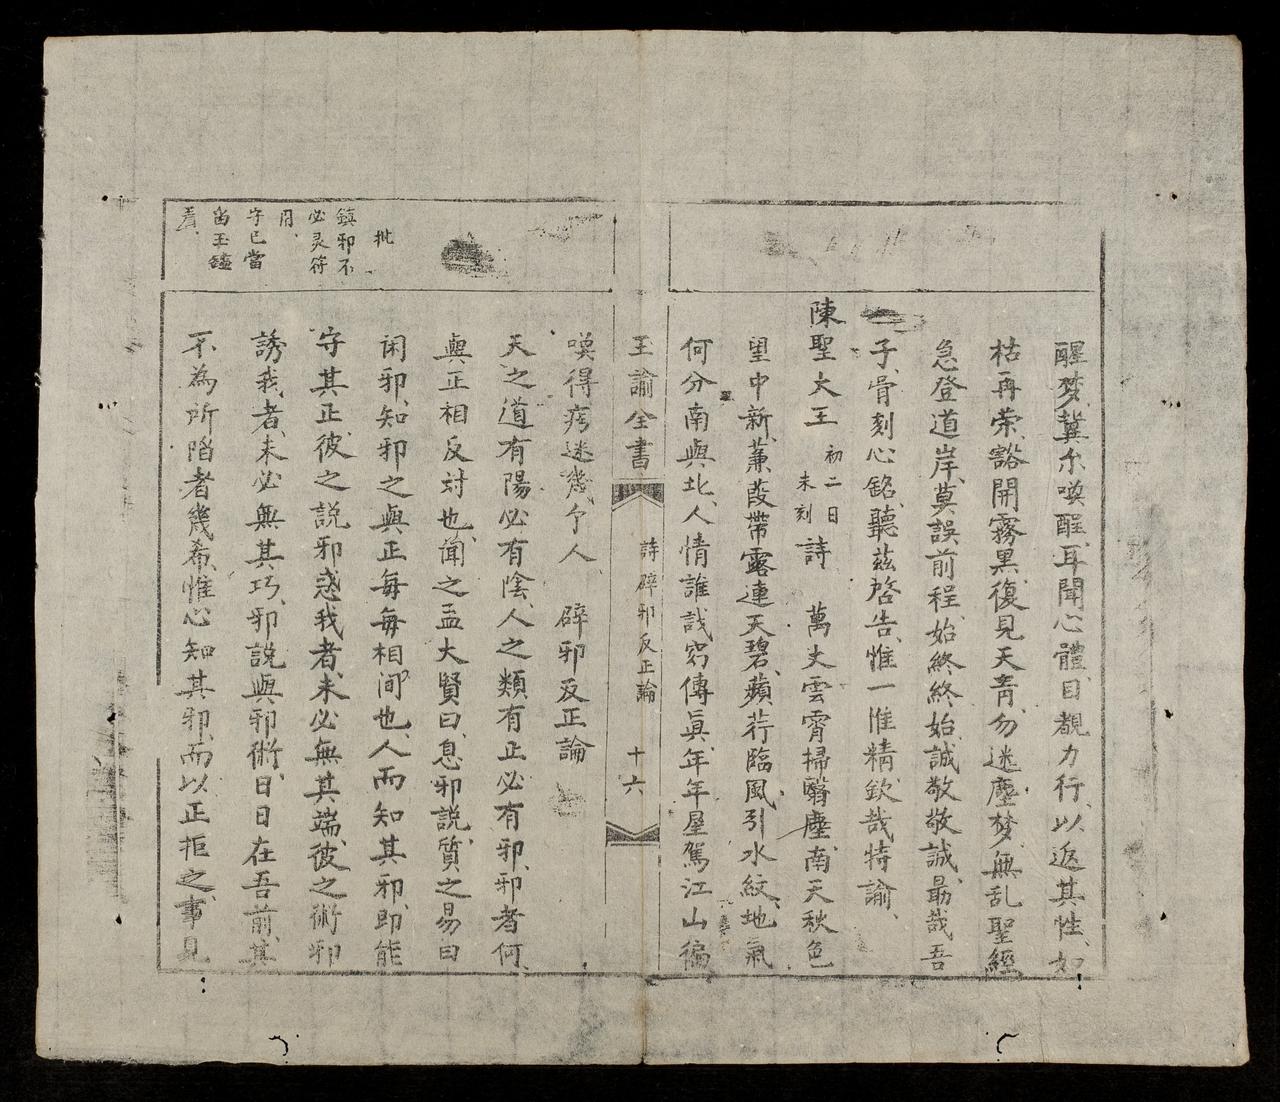 醒梦冀尔喚醒、耳聞心體、目覩力行、以返其性、如
枯再荣、豁開霧黒、復見天青、勿迷塵梦、無乱聖經
急登道岸、莫誤前程、始終終始、誠敬敬誠、勗哉吾
子、骨刻心銘、聽茲啓告、惟一惟精、欽哉特諭、
陳聖大王 初二日未刻 詩 萬丈雲霄掃翳塵、南天秋色
望中新、蒹葭帶露連天碧、蘋荇臨風引水紋、地氣
何分南與北、人情誰識窮傳真、年年屋駕江山徧
王諭全書 詩 辟邪反正論 十六
喚得痴迷幾个人 辟邪反正論
天之道有陽必有陰、人之類有正必有邪、邪者何、
與正相反対也、聞之孟大賢曰、息邪說、質之易曰
闲邪、知邪之與正每每相间也、人而知其邪、即能
守其正、彼之說邪惑我者、未必無其端、彼之術邪
誘我者、未必無其巧、邪説與邪術、日日在吾前、其
不為所陷者幾希、惟心知其邪、而以正拒之、事見
批
鎮邪不
必灵符
用、
守已當
看、